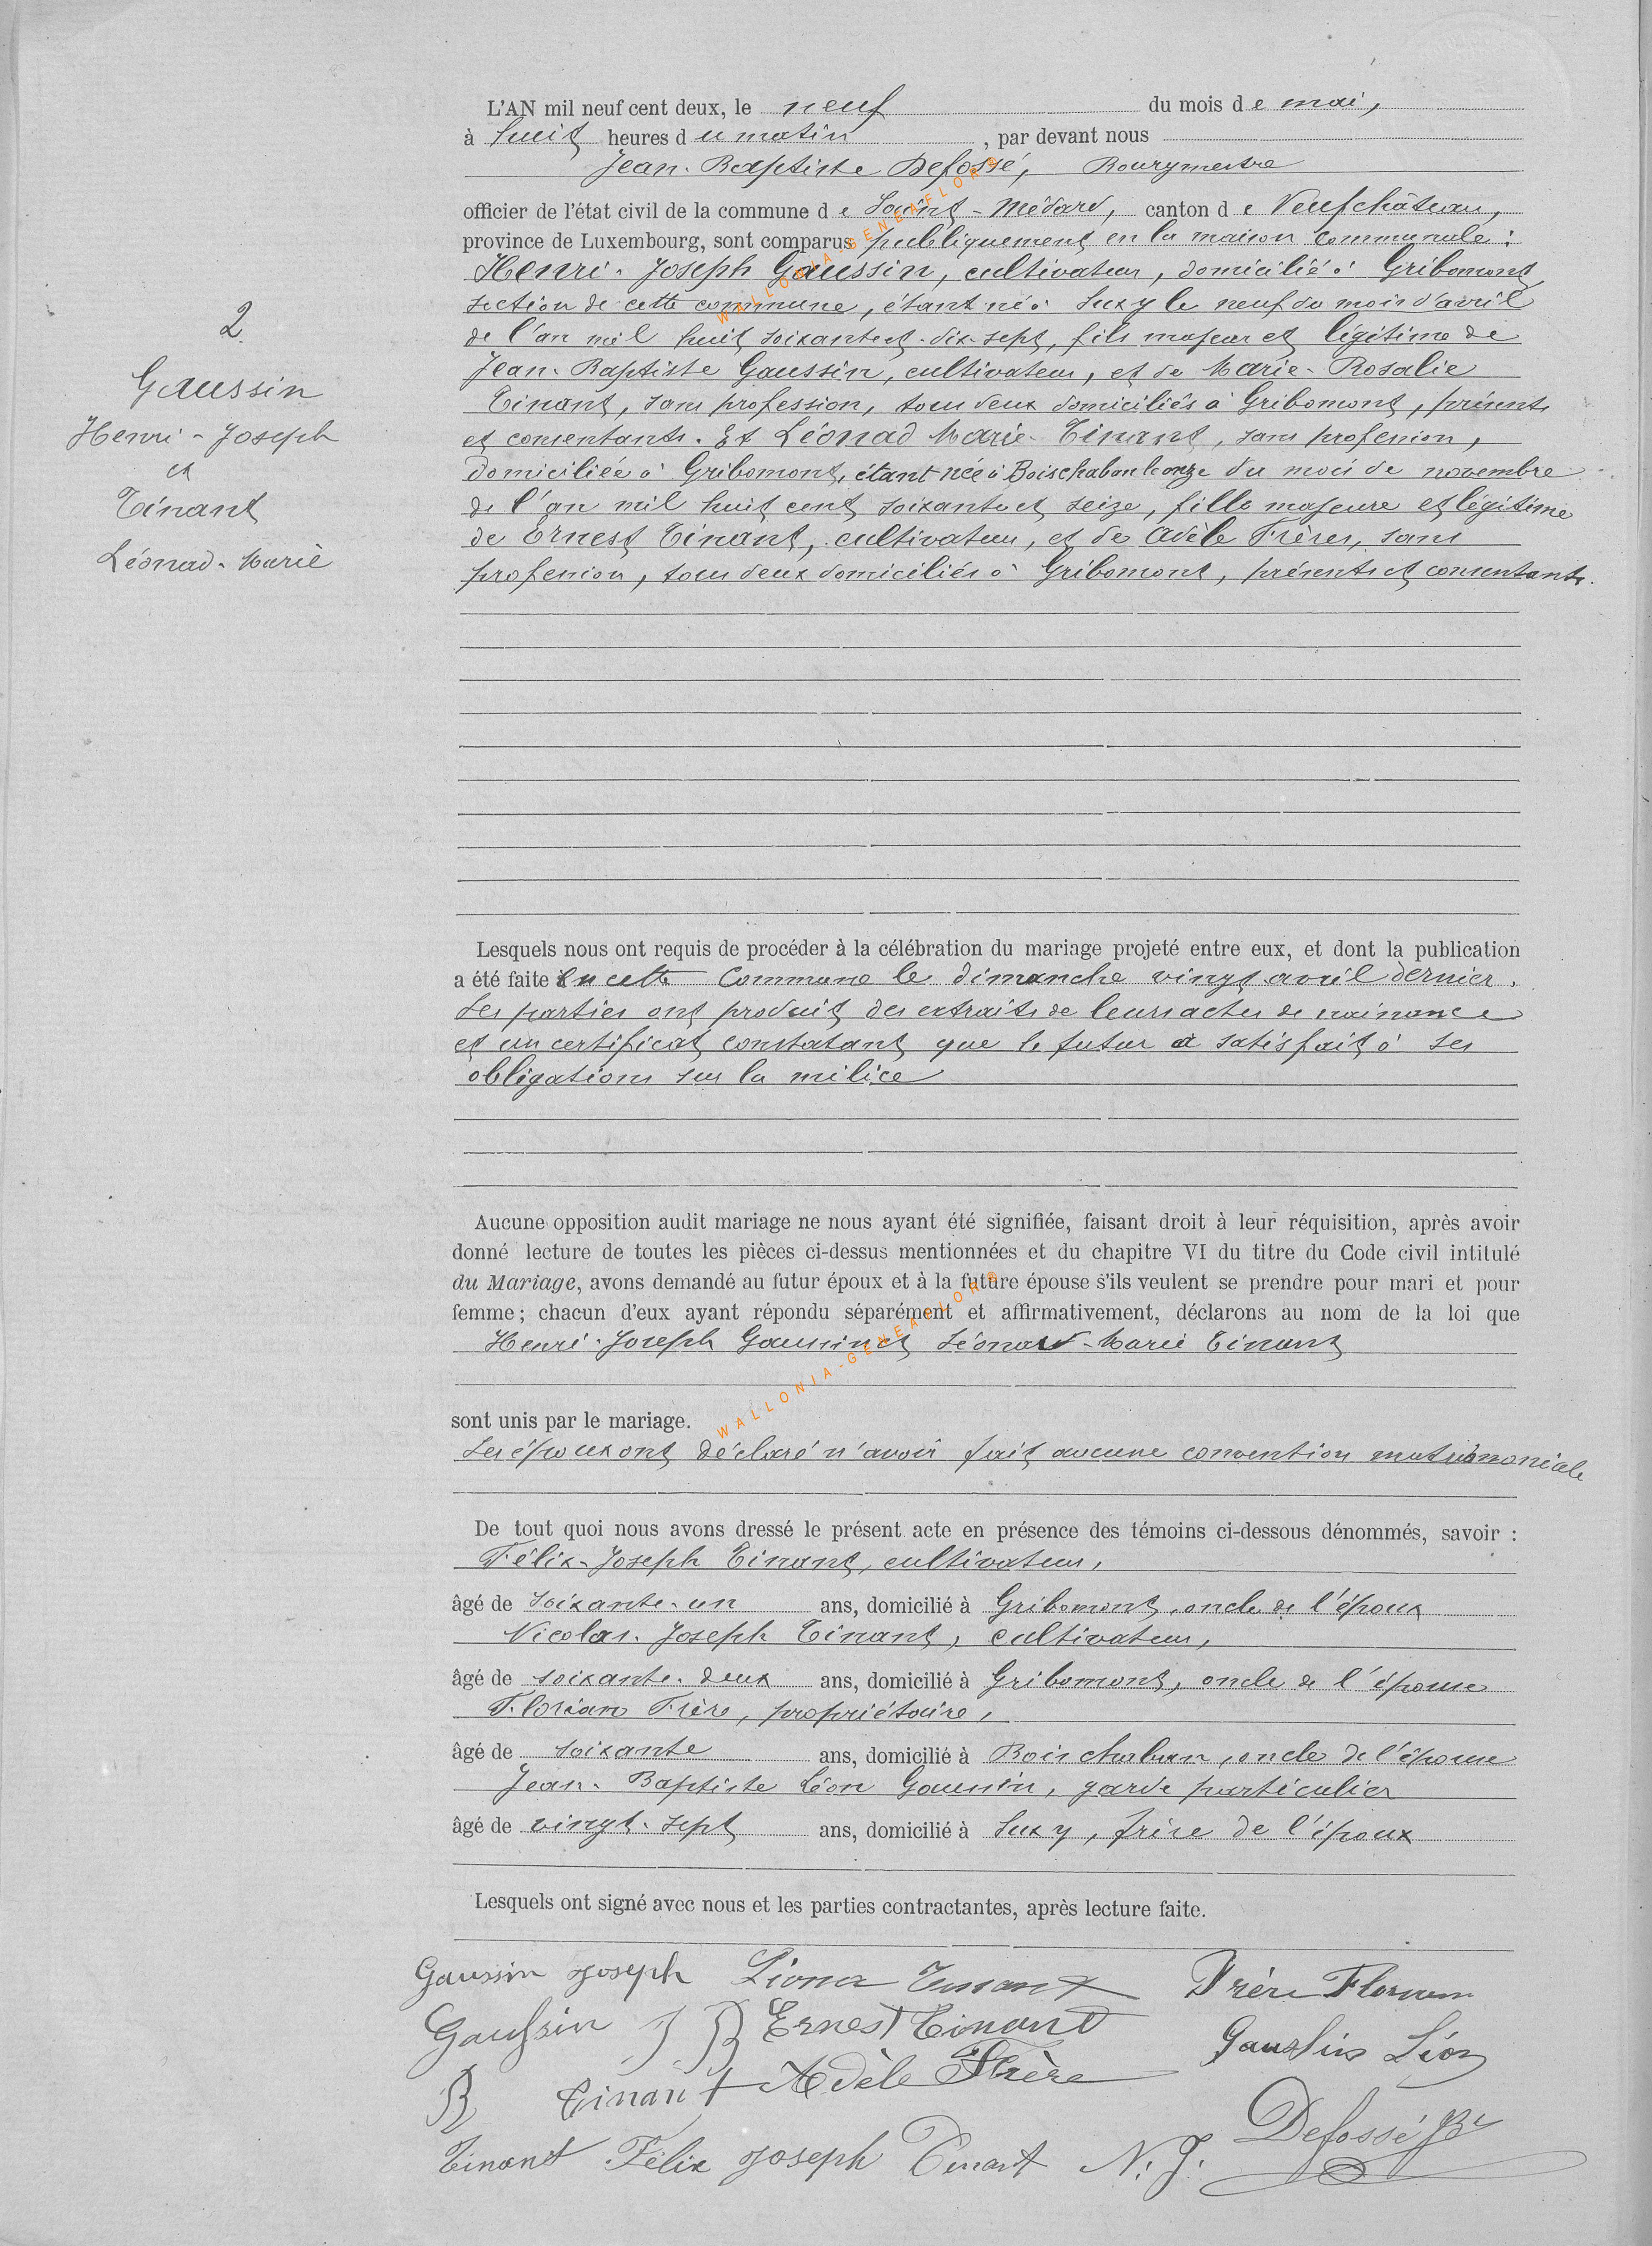 L'AN mil neuf cent deux, le neuf du mois de mai,
à huit heures du matin, par devant nous
Jean-Baptiste Defossé, Bourgmestre
officier de l'état civil de la commune de Saint-Médard, canton de Neufchâteau,
province de Luxembourg, sont comparus publiquement en la maison communale :
Henri-Joseph Gaussin, cultivateur, domicilié à Gribomont
section de cette commune, étant né à Suxy le neuf du mois d'avril
de l'an mil huit soixante et dix-sept, fils majeur et légitime de
2
Jean-Baptiste Gaussin, cultivateur, et de Marie-Rosalie
Gaussin
Tinant, sans profession, tous deux domiciliés à Gribomont, présents
Henri-Joseph
et consentants. Et Léonad Marie Tinant, sans profession,
et
domiciliée à Gribomont, étant née à Boischaban le onze du mois de novembre
Tinant
de l'an mil huit cent soixante et seize, fille majeure et légitime
de Ernest Tinant, cultivateur, et de Adèle Frère, sans
Léonad-Marie
profession, tous deux domiciliés à Gribomont, présents et consentants.
Lesquels nous ont requis de procéder à la célébration du mariage projeté entre eux, et dont la publication
a été faite en cette Commune le dimanche vingt avril dernier.
Les parties ont produit des extraits de leurs actes de naissance
et un certificat constatant que le futur a satisfait à ses
obligations sur la milice
Aucune opposition audit mariage ne nous ayant été signifiée, faisant droit à leur réquisition, après avoir
donné lecture de toutes les pièces ci-dessus mentionnées et du chapitre VI du titre du Code civil intitulé
du Mariage, avons demandé au futur époux et à la future épouse s'ils veulent se prendre pour mari et pour
femme ; chacun d'eux ayant répondu séparément et affirmativement, déclarons au nom de la loi que
Henri-Joseph Gaussin et Léonad-Marie Tinant
sont unis par le mariage.
Les époux ont déclaré n'avoir fait aucune convention matrimoniale
De tout quoi nous avons dressé le présent acte en présence des témoins ci-dessous dénommés, savoir :
Félix-Joseph Tinant, cultivateur,
âgé de soixante-un ans, domicilié à Gribomont, oncle de l'époux
Nicolas-Joseph Tinant, cultivateur,
âgé de soixante-deux ans, domicilié à Gribomont, oncle de l'épouse
Florian Frère, propriétaire,
âgé de soixante ans, domicilié à Boischaban, oncle de l'épouse
Jean-Baptiste Léon Gaussin, garde particulier
âgé de vingt-sept ans, domicilié à Suxy, frère de l'époux
Lesquels ont signé avec nous et les parties contractantes, après lecture faite.
Gaussin Joseph Léona Tinant Frère Florian
Gaussin J B Ernest Tinant Gaussin Léon
B Tinant Adèle Frère
Defossé JB
Tinant Félix Joseph Tinant N. J.
WALLONIA-GENEAFLOR
WALLONIA-GENEAFLOR